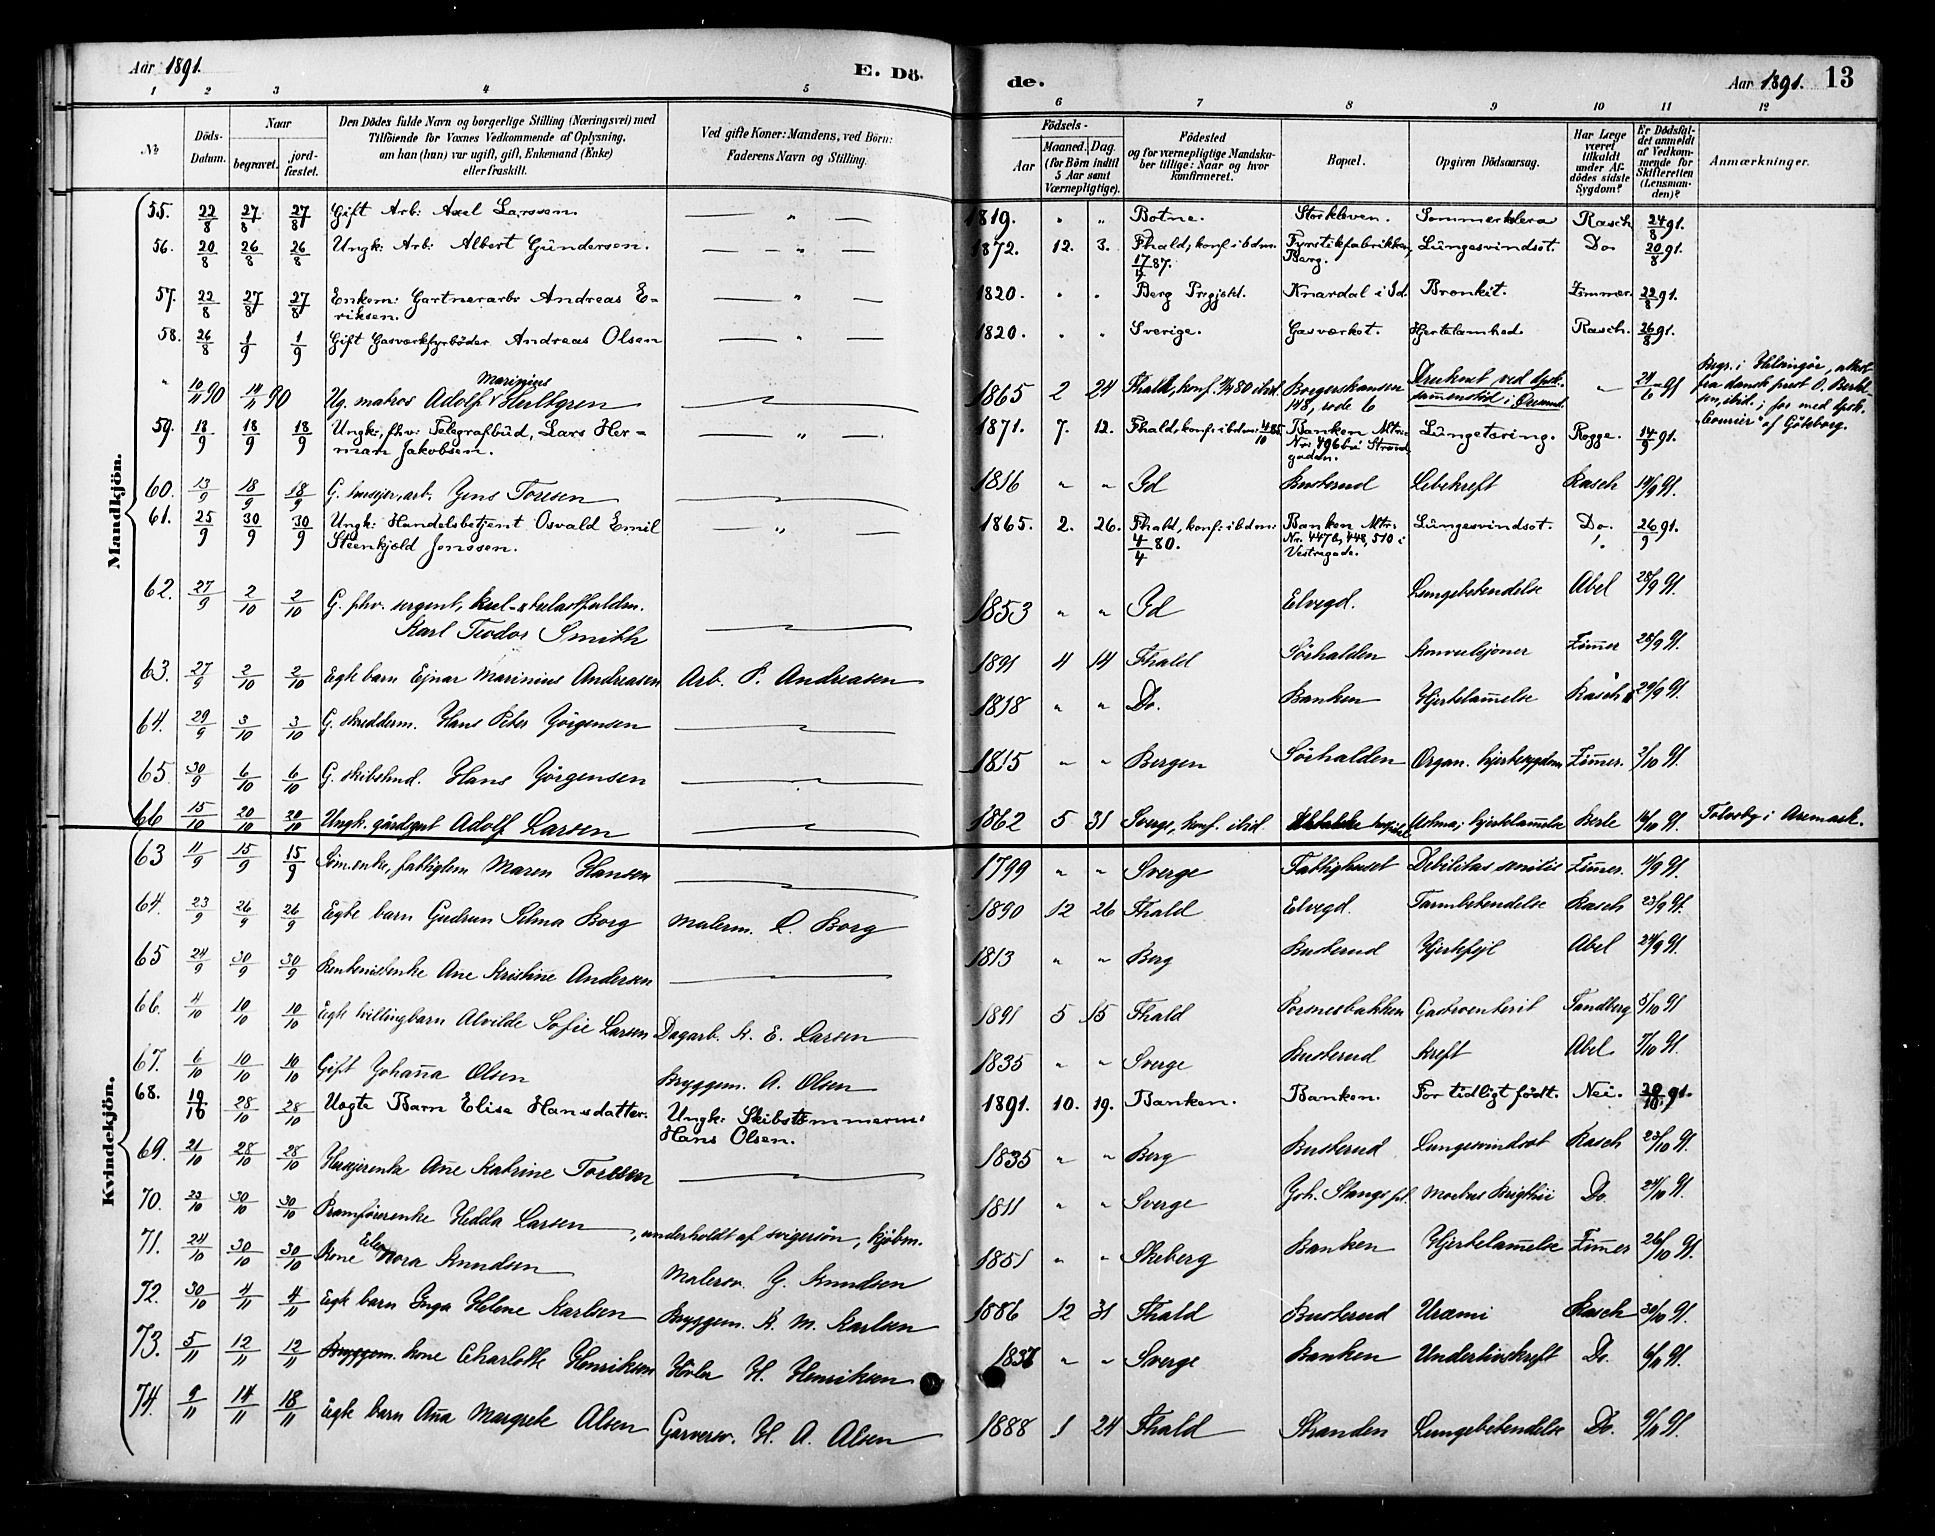 Aar 1891.
E. Dö-
de.
Aar 1891. 13
1 2 3 4 5 6 7 8 9 10 11 12
№
Döds-Datum.
Naar
begravet.
jord-fæstet.
Den Dödes fulde Navn og borgerlige Stilling (Næringsvei) med
Tilföiende for Voxnes Vedkommende af Oplysning,
om han (hun) var ugift, gift, Enkemand (Enke)
eller fraskilt.
Ved gifte Koner: Mandens, ved Börn:
Faderens Navn og Stilling.
Födsels-
Aar
Maaned. Dag.
(for Börn indtil
5 Aar samt
Værnepligtige).
Födested
og for værnepligtige Mandska-
ber tillige: Naar og hvor
konfirmeret.
Bopæl.
Opgiven Dödsaarsag.
Har Læge
været
tilkaldt
under Af-
dödes sidste
Sygdom?
Er Dödsfal-
det anmeldt
af Vedkom-
mende for
Skifteretten
(Lensman-
den)?
Anmærkninger.
Mandkjön.
55. 22/8 27/8 27/8 Gift Arb: Axel Larssen. — " — 1819. " " Botne. Storkleven. Sommerkolera Rasch 24/8 91.
56. 20/8 26/8 26/8 Ungk: Arb: Albert Gundersen. — " — 1872. 12. 3. Fhald, konf. ibdm. Fyrstikfabrikken, Lungesvindsot. Do 20/8 91.
17/4 87. Berg.
57. 22/8 27/8 27/8 Enkem: Gartnerarb: Andreas E- — " — 1820. " " Berg Prgjeld. Knardal i Id. Bronkit. Zimmer. 22/8 91.
riksen.
58. 26/8 1/9 1/9 Gift Gasværkfyrböder Andreas Olsen — " — 1820. " " Sverige. Gasværket. Hjertelamhed. Rasch. 26/8 91.
" 10/11 90 14/11 90 Ug. matros Adolf Marinius Hultgren 1865 2 24 Fhald, konf. 80 ibid. Borgerskansen Druknet ved dpsk. " 24/6 91
148, rode 6 sammenstöd i Öresund.
Begr. i Helsingör, attest
fra dansk prest O. Bertel-
sen, ibid.; for med dpsk.
"Courier" af Göteborg.
59. 18/9 18/9 18/9 Ungk:, fhv: Telegrafbud, Lars Her- — " — 1871. 7. 12. Fhald, konf: ibdm: 4/10 85 Banken Mtr: Lungetæring. Rogge. 14/9 91.
man Jakobsen. Nr: 496 b i Strand-
gaden.
60. 13/9 18/9 18/9 G. husejer, arb. Jens Toresen 1816 " " Id Busterud Leverkreft Rasch 14/9 91.
61. 25/9 30/9 30/9 Ungk: Handelsbetjent Osvald Emil — " — 1865. 2. 26. Fhald, konf: ibdm: Banken Mtr: Lungesvindsot. Do. 26/9 91.
Steenkjeld Jenssen. 4/4 80. Nr. 447 b, 448, 510 i
Vestregade.
62. 27/9 2/10 2/10 G. fhv. sergent, 1853 " " Id Elvegd. Lungebetendelse Abel 28/9 91.
Karl Teodor Smith
63. 27/9 2/10 2/10 Egte barn Ejnar Marinius Andreasen Arb. P. Andreasen 1891 4 14 Fhald Sörhalden Konvulsjoner Zimmer 28/9 91.
64. 29/9 3/10 3/10 G. skredderm. Hans Peter Jörgensen 1818 " " Do. Banken Hjertelammelse Rasch 29/9 91.
65. 30/9 6/10 6/10 G. skibstmd. Hans Jörgensen 1815 " " Bergen Sörhalden Organ. hjertesygdom Zimmer. 2/10 91.
66 15/10 20/10 20/10 Ungk. gårdgut Adolf Larsen 1862 5 31 Sverge, konf. ibid. Astma; hjertelammelse Berle 16/10 91. Tolvsby i Aremark.
Kvindekjön.
63 11/9 15/9 15/9 Töm.enke, fattiglem Maren Hansen 1799 " " Sverge Fattighuset Debilitas senilis Zimmer. 11/9 91.
64. 23/9 26/9 26/9 Egte barn Gudrun Selma Borg Malerm. O. Borg 1890 12 26 Fhald Elvegd. Tarmbetendelse Rasch 23/9 91.
65 24/9 30/9 30/9 Rentenistenke Ane Kristine Andersen 1813 " " Berg Busterud Hjertefejl Abel 24/9 91.
66. 4/10 10/10 10/10 Egte tvillingbarn Alvilde Sofie Larsen Dagarb. K. E. Larsen 1891 5 15 Fhald Porsnesbakken Gastroenterit Tandberg 5/10 91
67. 6/10 10/10 10/10 Gift Johanna Olsen Bryggem. A. Olsen 1835 " " Sverge Busterud Kreft Abel 7/10 91.
68. 19/10 28/10 28/10 Uegte Barn Elise Hansdatter. Ungk: Skibstömmermd: 1891. 10. 19. Banken. Banken. For tidligt födt. Nei. 20/10 91.
Hans Olsen.
69. 21/10 28/10 28/10 Husejerenke Ane Katrine Toresen 1835 " " Berg Busterud Lungesvindsot Rasch 23/10 91.
70. 23/10 30/10 30/10 Pramförerenke Hedda Larsen, underholdt af svigersön, kjöbm. 1811 " " Sverge Joh. Stangs pl. Morbus Brigthii Do. 24/10 91.
71. 24/10 30/10 30/10 Kone Eleonora Knudsen Malersv. G. Knudsen 1851 " " Skeberg Banken Hjertelammelse Zimmer 26/10 91.
72. 30/10 4/11 4/11 Egte barn Inga Helene Karlsen Bryggem. K. M. Karlsen 1886 12 31 Fhald Busterud Uræmi Rasch 30/10 91.
73. 5/11 12/11 12/11 Bryggem. Kone Charlotte Henriksen Hövler H. Henriksen 1837 " " Sverge Banken Underlivskreft Do. 6/11 91.
74. 9/11 14/11 18/11 Egte barn Anna Margrete Alsen Garversv. H. A. Alsen 1888 1 24 Fhald Stranden Lungebetendelse Do. 9/11 91.